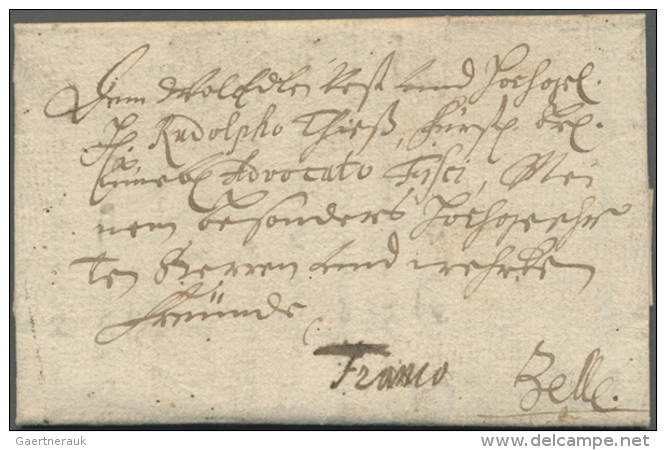 Dem WolEdlen Vest und Hochgel.
H. Rudolpho Thieß, Fürstl. Br.
Luneb. Advocato Fisci, Mei
nem besonders Hochgeehr
ten Herren und wehrten
Freünde
Franco Zelle.
Gaertnerauk
www.delcampe.net